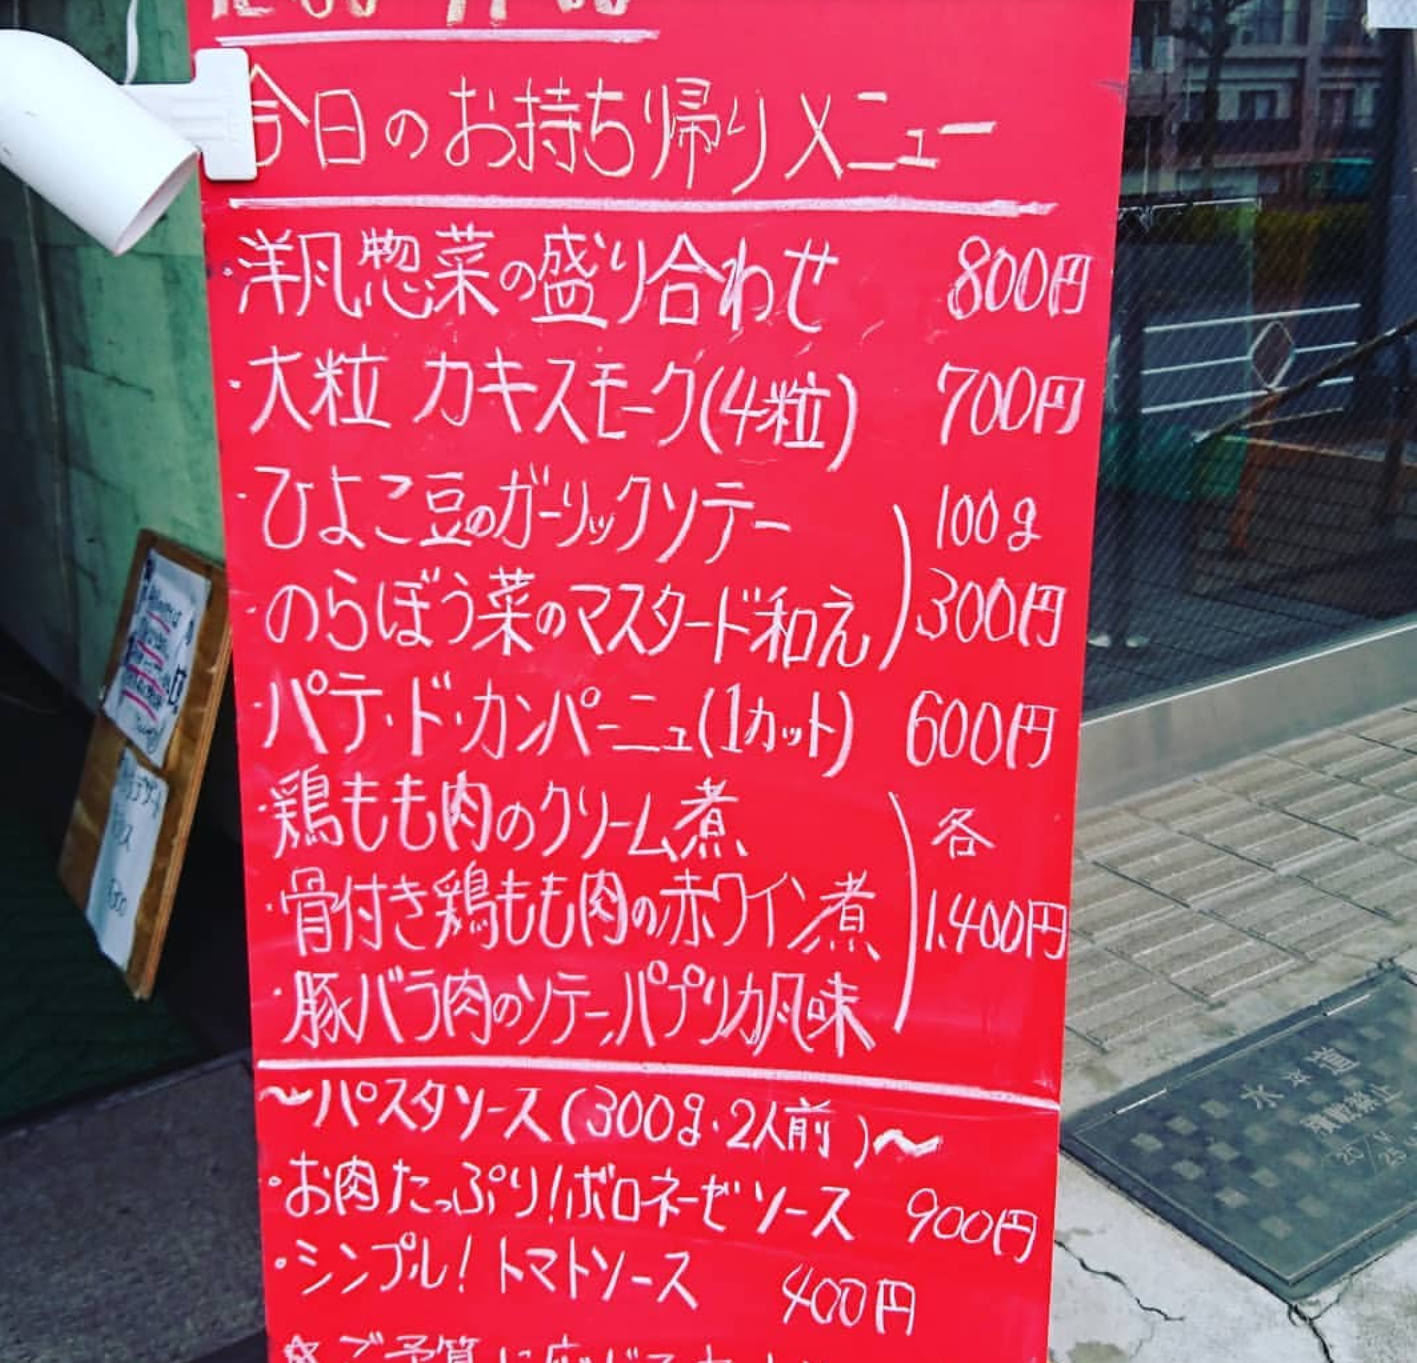 今日のお持ち帰りメニュー
・洋風惣菜の盛り合わせ 800円
・大粒 カキスモーク(4粒) 700円
・ひよこ豆のガーリックソテー 100g
・のらぼう菜のマスタード和え 300円
・パテ・ド・カンパーニュ(1カット) 600円
・鶏もも肉のクリーム煮 各
・骨付き鶏もも肉の赤ワイン煮 1.400円
・豚バラ肉のソテー,パプリカ風味
〜パスタソース(300g・2人前)〜
・お肉たっぷり!ボロネーゼソース 900円
・シンプル!トマトソース 400円
☆ご予算に
水道